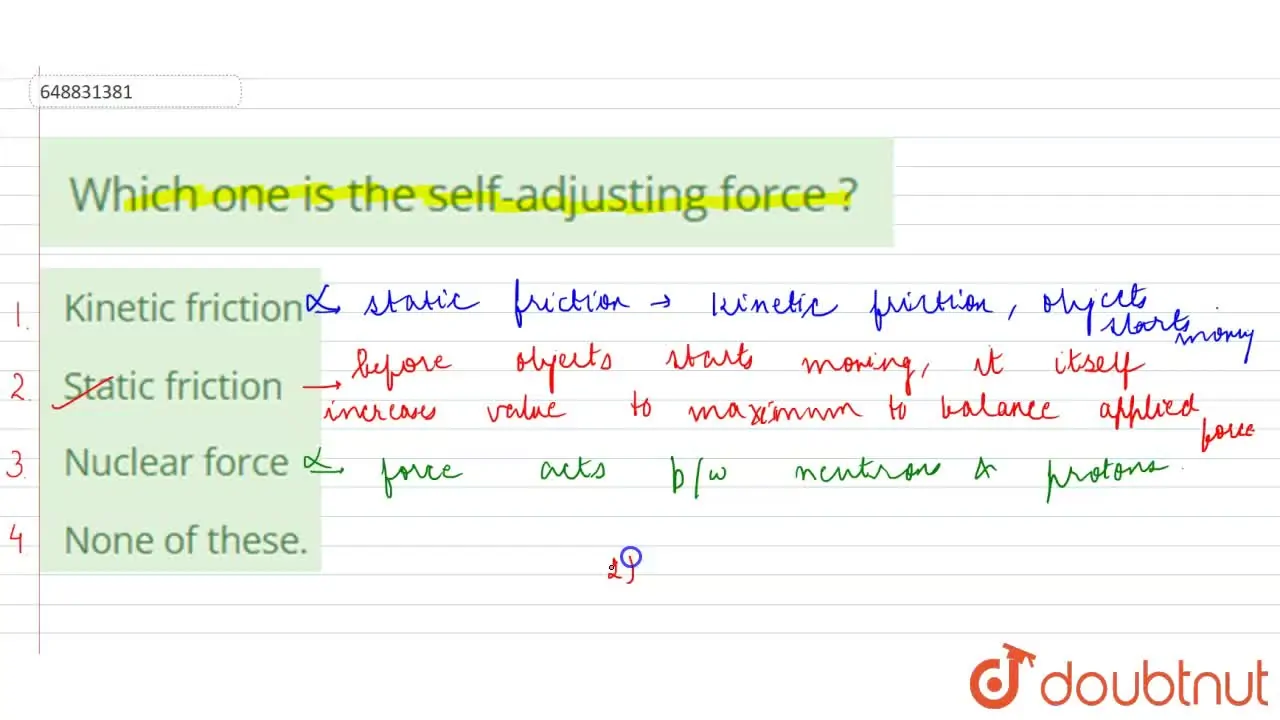 648831381
Which one is the self-adjusting force ?
1. Kinetic friction static friction → kinetic friction, objects
starts moving
2. Static friction → before objects starts moving, it itself
increases value to maximum to balance applied
force
3. Nuclear force force acts b/w neutrons & protons.
4 None of these.
2)
doubtnut